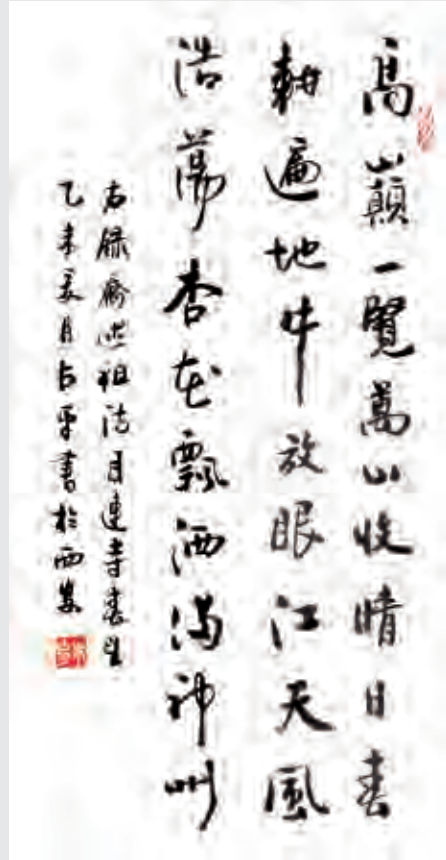 高山巔一覽萬山收晴日春
耕遍地牛放眼江天風
浩蕩杏花飄洒滿神州
右錄祖詩目連寺春望
乙未夏月占平書於西安